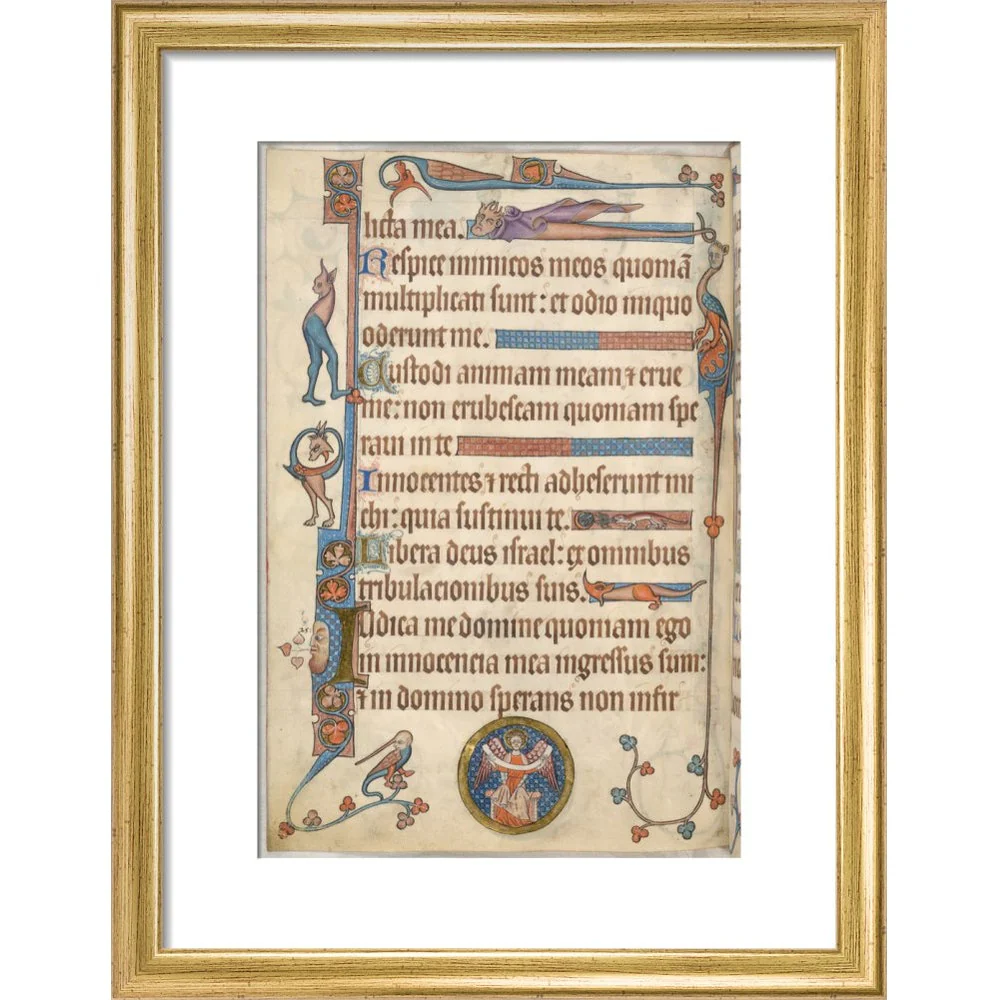 licta mea.
Respice inimicos meos quoniā
multiplicati sunt: et odio iniquo
oderunt me.
Custodi animam meam ⁊ erue
me: non erubescam quoniam spe
raui in te
Innocentes ⁊ recti adheserunt mi
chi: quia sustinui te.
Libera deus israel: ex omnibus
tribulacionibus suis.
Iudica me domine quoniam ego
in innocencia mea ingressus sum:
⁊ in domino sperans non infir